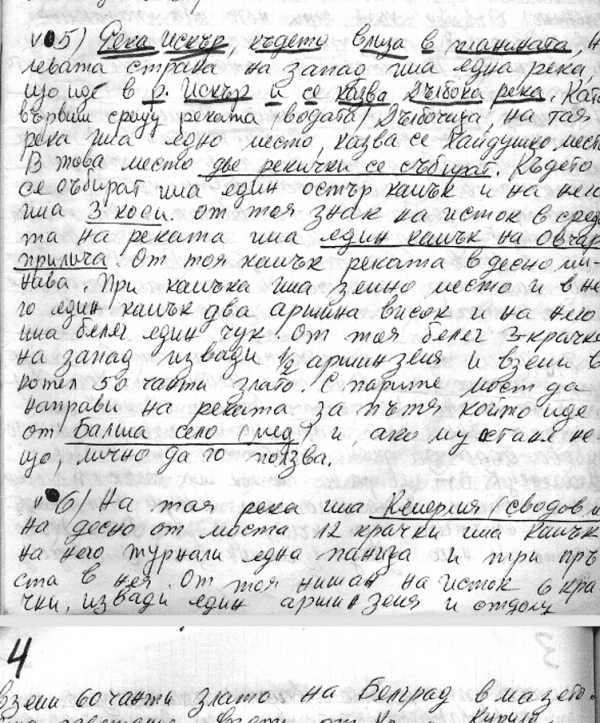 5) Река Искър, където влиза в планината, н
левата страна на запад има една река,
що иде в р. Искър и се казва Дълбока река. Като
вървиш срещу реката (водата) Дълбочица, на тая
река има едно место, казва се Хайдушко место
В това место две рекички се събират. Където
се събират има един остър камък и на него
има 3 коси. От тоя знак на исток в сред
та на реката има един камък на овчар
прилича. От тоя камък реката в десно ми-
нава. При камъка има земно место и в не
го един камък два аршина висок и на него
има белег един чук. От тоя белег 3 крачки
на запад извади 1/2 аршин земя и вземи
котел 50 чанти злато. С парите мост да
направи на реката за пътя който иде
от Балша село и, ако му остане не-
що, лично да го ползва.
6) На тая река има Кемерлия (сводов м
На десно от моста 12 крачки има камък
на него турнали една паница и три пръ
ста в нея. От тоя нишан на исток 6 кра
чки, извади един аршин земя и отдолу
4
вземи 60 чанти злато на Белград в мазето.